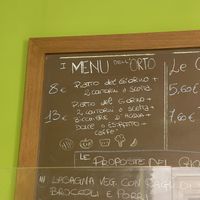 I MENU DELL'ORTO
8€ PIATTO DEL GIORNO +
2 CONTORNI A SCELTA
13€ PIATTO DEL GIORNO +
2 CONTORNI A SCELTA +
BICCHIERE D'ACQUA +
DOLCE O ESTRATTO +
CAFFE'
LE
5,60€
7,60
LE PROPOSTE DEL GIO
LASAGNA VEG. CON RAGÙ DI
BROCCOLI E PORRI